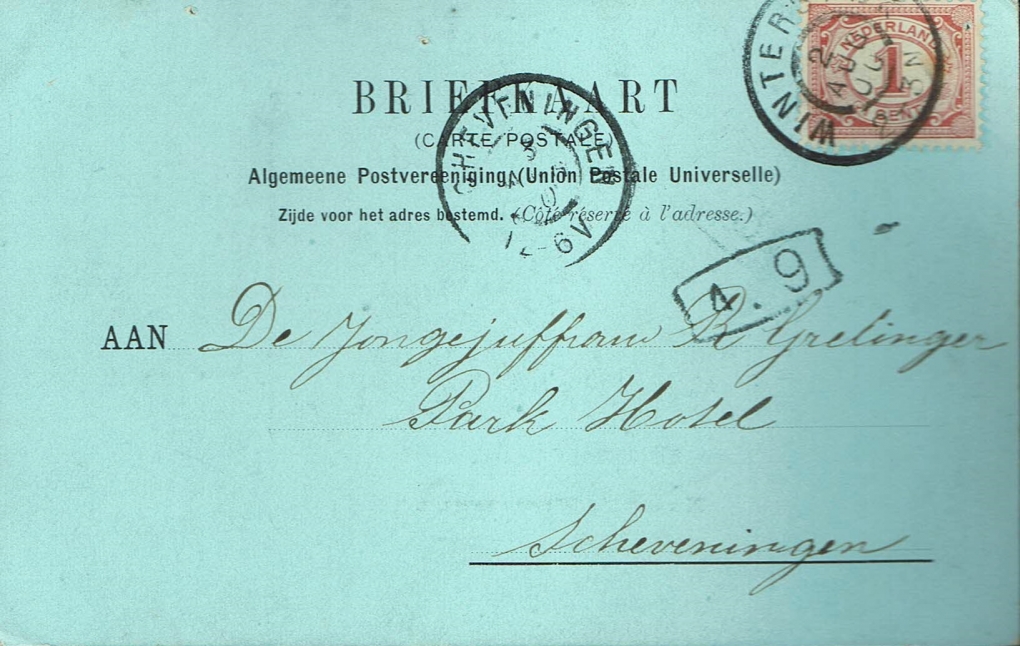 BRIEFKAART
(CARTE POSTALE)
Algemeene Postvereeniging (Union Postale Universelle)
Zijde voor het adres bestemd. (Côté réservé à l'adresse.)
NEDERLAND
1
CENT
WINTER
2 AUG
3 N
SCHEVENINGEN
3
4.9
AAN De Jongejuffrauw R Grelinger
Park Hotel
Scheveningen